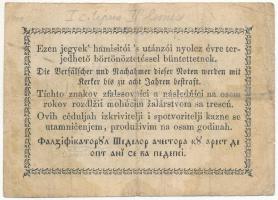 Ezen jegyek' hamisitói 's utánzói nyolcz évre ter-
jedhető börtönöztetéssel büntettetnek.
Die Verfälscher und Nachahmer dieser Noten werden mit
Kerker bis zu acht Jahren bestraft.
Tichto znakov zfalssovníci a následníci na osam
rokov rozdlžiť mohúcím žalárstvom sa trescú.
Ovih céduljah izkrivitelji i spotvoritelji kazne se
utamničenjem, produživim na osam godinah.
Фалзіфікаторул Шедeлор ачестора ку арест де
опт ані се ва педепсі.